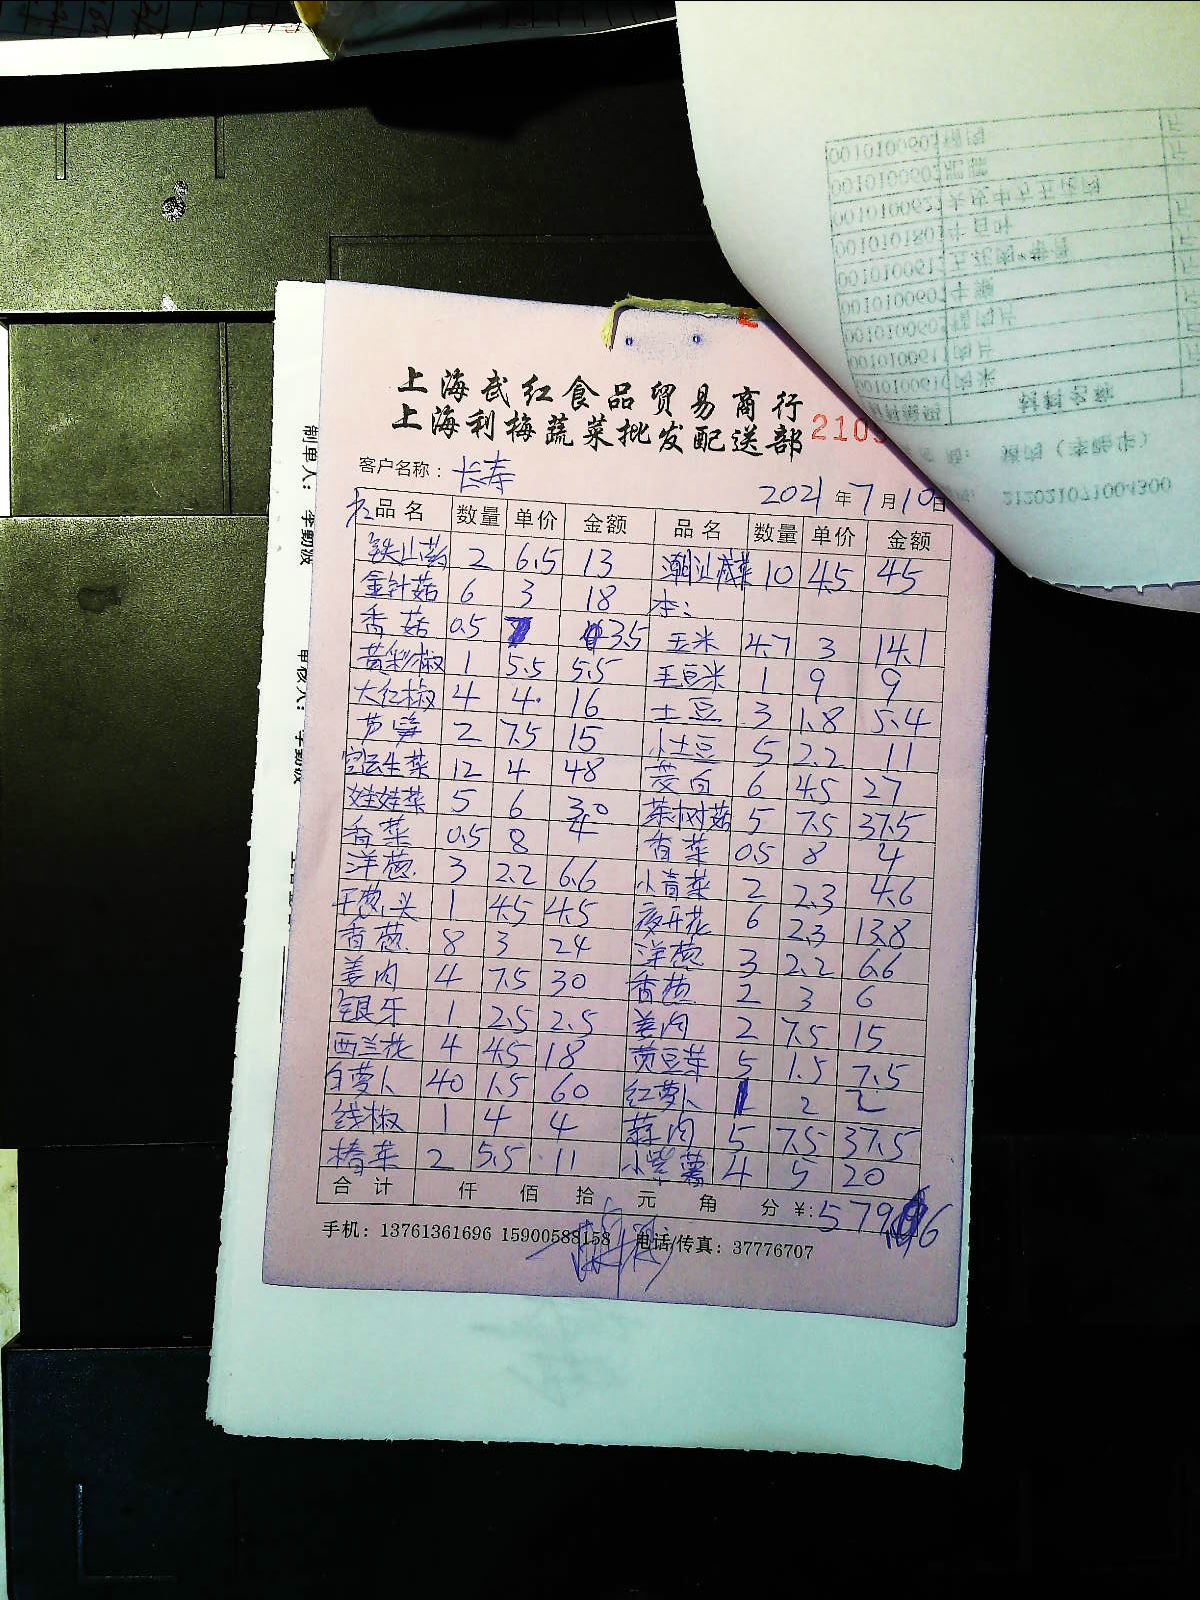 上海武红食品贸易商行
上海利梅蔬菜批发配送部
客户名称：长寿
2021年7月10日
品名 数量 单价 金额 品名 数量 单价 金额
铁山药 2 6.5 13 潮汕咸菜 10 4.5 45
金针菇 6 3 18 本：
香菇 0.5 3.5 玉米 4.7 3 14.1
黄彩椒 1 5.5 5.5 毛豆米 1 9 9
大红椒 4 4 16 土豆 3 1.8 5.4
芦笋 2 7.5 15 小土豆 5 2.2 11
生菜 12 4 48 茭白 6 4.5 27
娃娃菜 5 6 30 茶树菇 5 7.5 37.5
香菜 0.5 8 4 香菜 0.5 8 4
洋葱 3 2.2 6.6 小青菜 2 2.3 4.6
干葱头 1 4.5 4.5 夜开花 6 2.3 13.8
香葱 8 3 24 洋葱 3 2.2 6.6
姜肉 4 7.5 30 香葱 2 3 6
银牙 1 2.5 2.5 姜肉 2 7.5 15
西兰花 4 4.5 18 黄豆芽 5 1.5 7.5
白萝卜 40 1.5 60 红萝卜 1 2 2
线椒 1 4 4 蒜肉 5 7.5 37.5
椿菜 2 5.5 11 小紫薯 4 5 20
合计 仟 佰 拾 元 角 分 ¥:579.6
手机：13761361696 15900588158 电话/传真：37776707
制单人： 李勤波
审核人： 李勤波
212021071004300